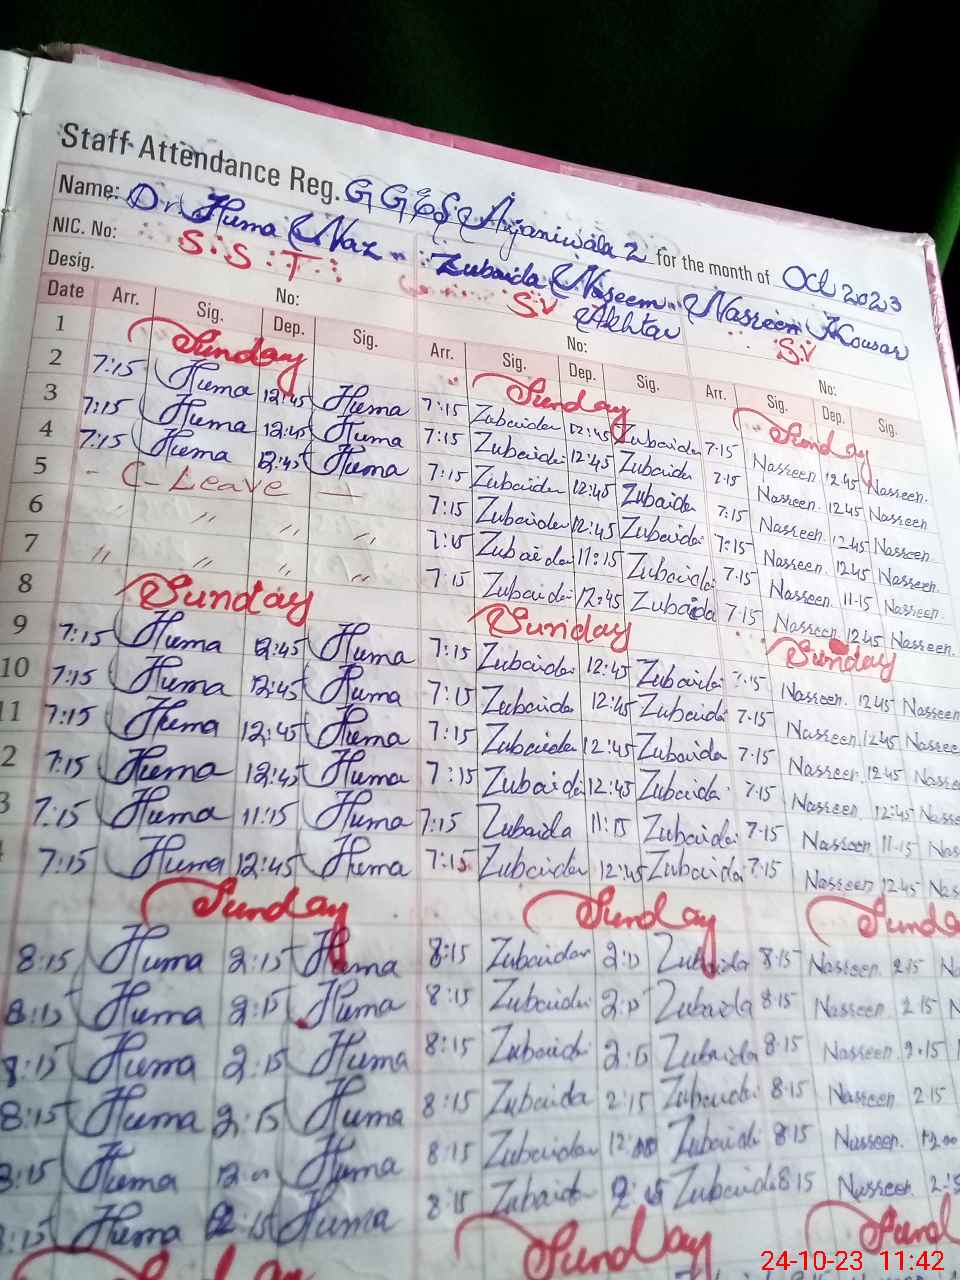 Staff Attendance Reg. GGES Arjaniwala 2 for the month of Oct 2023
Name: Dr. Huma Naz Zubaida Naseem Akhtar Nasreen Kousar
NIC. No: S.S.T. SV SV
Desig. No: No: No:
Date Arr. Sig. Dep. Sig. Arr. Sig. Dep. Sig. Arr. Sig. Dep. Sig.
1 Sunday Sunday Sunday
2 7:15 Huma 12:45 Huma 7:15 Zubaida 12:45 Zubaida 7-15 Nasreen 12 45 Nasreen.
3 7:15 Huma 12:45 Huma 7:15 Zubaida 12:45 Zubaida 7-15 Nasreen. 12 45 Nasreen
4 7:15 Huma 12:45 Huma 7:15 Zubaida 12:45 Zubaida 7:15 Nasreen 12 45 Nasreen
5 - C-Leave - 7:15 Zubaida 12:45 Zubaida 7:15 Nasreen 12 45 Nasreen
6 " " " " 7:15 Zubaida 11:15 Zubaida 7-15 Nasreen 11-15 Nasreen.
7 " " " " 7:15 Zubaida 12:45 Zubaida 7-15 Nasreen 12 45 Nasreen.
8 Sunday Sunday Sunday
9 7:15 Huma 12:45 Huma 7:15 Zubaida 12:45 Zubaida 7-15 Nasreen. 12 45 Nasreen
10 7:15 Huma 12:45 Huma 7:15 Zubaida 12:45 Zubaida 7-15 Nasreen. 12 45 Nasree
11 7:15 Huma 12:45 Huma 7:15 Zubaida 12:45 Zubaida 7-15 Nasreen. 12 45 Nasre
2 7:15 Huma 12:45 Huma 7:15 Zubaida 12:45 Zubaida 7-15 Nasreen. 12:45 Nasre
3 7:15 Huma 11:15 Huma 7:15 Zubaida 11:15 Zubaida 7-15 Nasreen 11-15 Nas
7:15 Huma 12:45 Huma 7:15 Zubaida 12:45 Zubaida 7-15 Nasreen 12 45 Nas
Sunday Sunday Sunda
8:15 Huma 2:15 Huma 8:15 Zubaida 2:15 Zubaida 8-15 Nasreen. 2 15 N
8:15 Huma 2:15 Huma 8:15 Zubaida 2:15 Zubaida 8-15 Nasreen. 2 15 N
8:15 Huma 2:15 Huma 8:15 Zubaida 2:15 Zubaida 8-15 Nasreen 2-15
8:15 Huma 2:15 Huma 8:15 Zubaida 2:15 Zubaida 8-15 Nasreen 2 15
8:15 Huma 12:00 Huma 8:15 Zubaida 12:00 Zubaida 8-15 Nasreen. 12 00
8:15 Huma 2:15 Huma 8:15 Zubaida 2:15 Zubaida 8-15 Nasreen 2:15
Sunday Sunday Sund
24-10-23 11:42